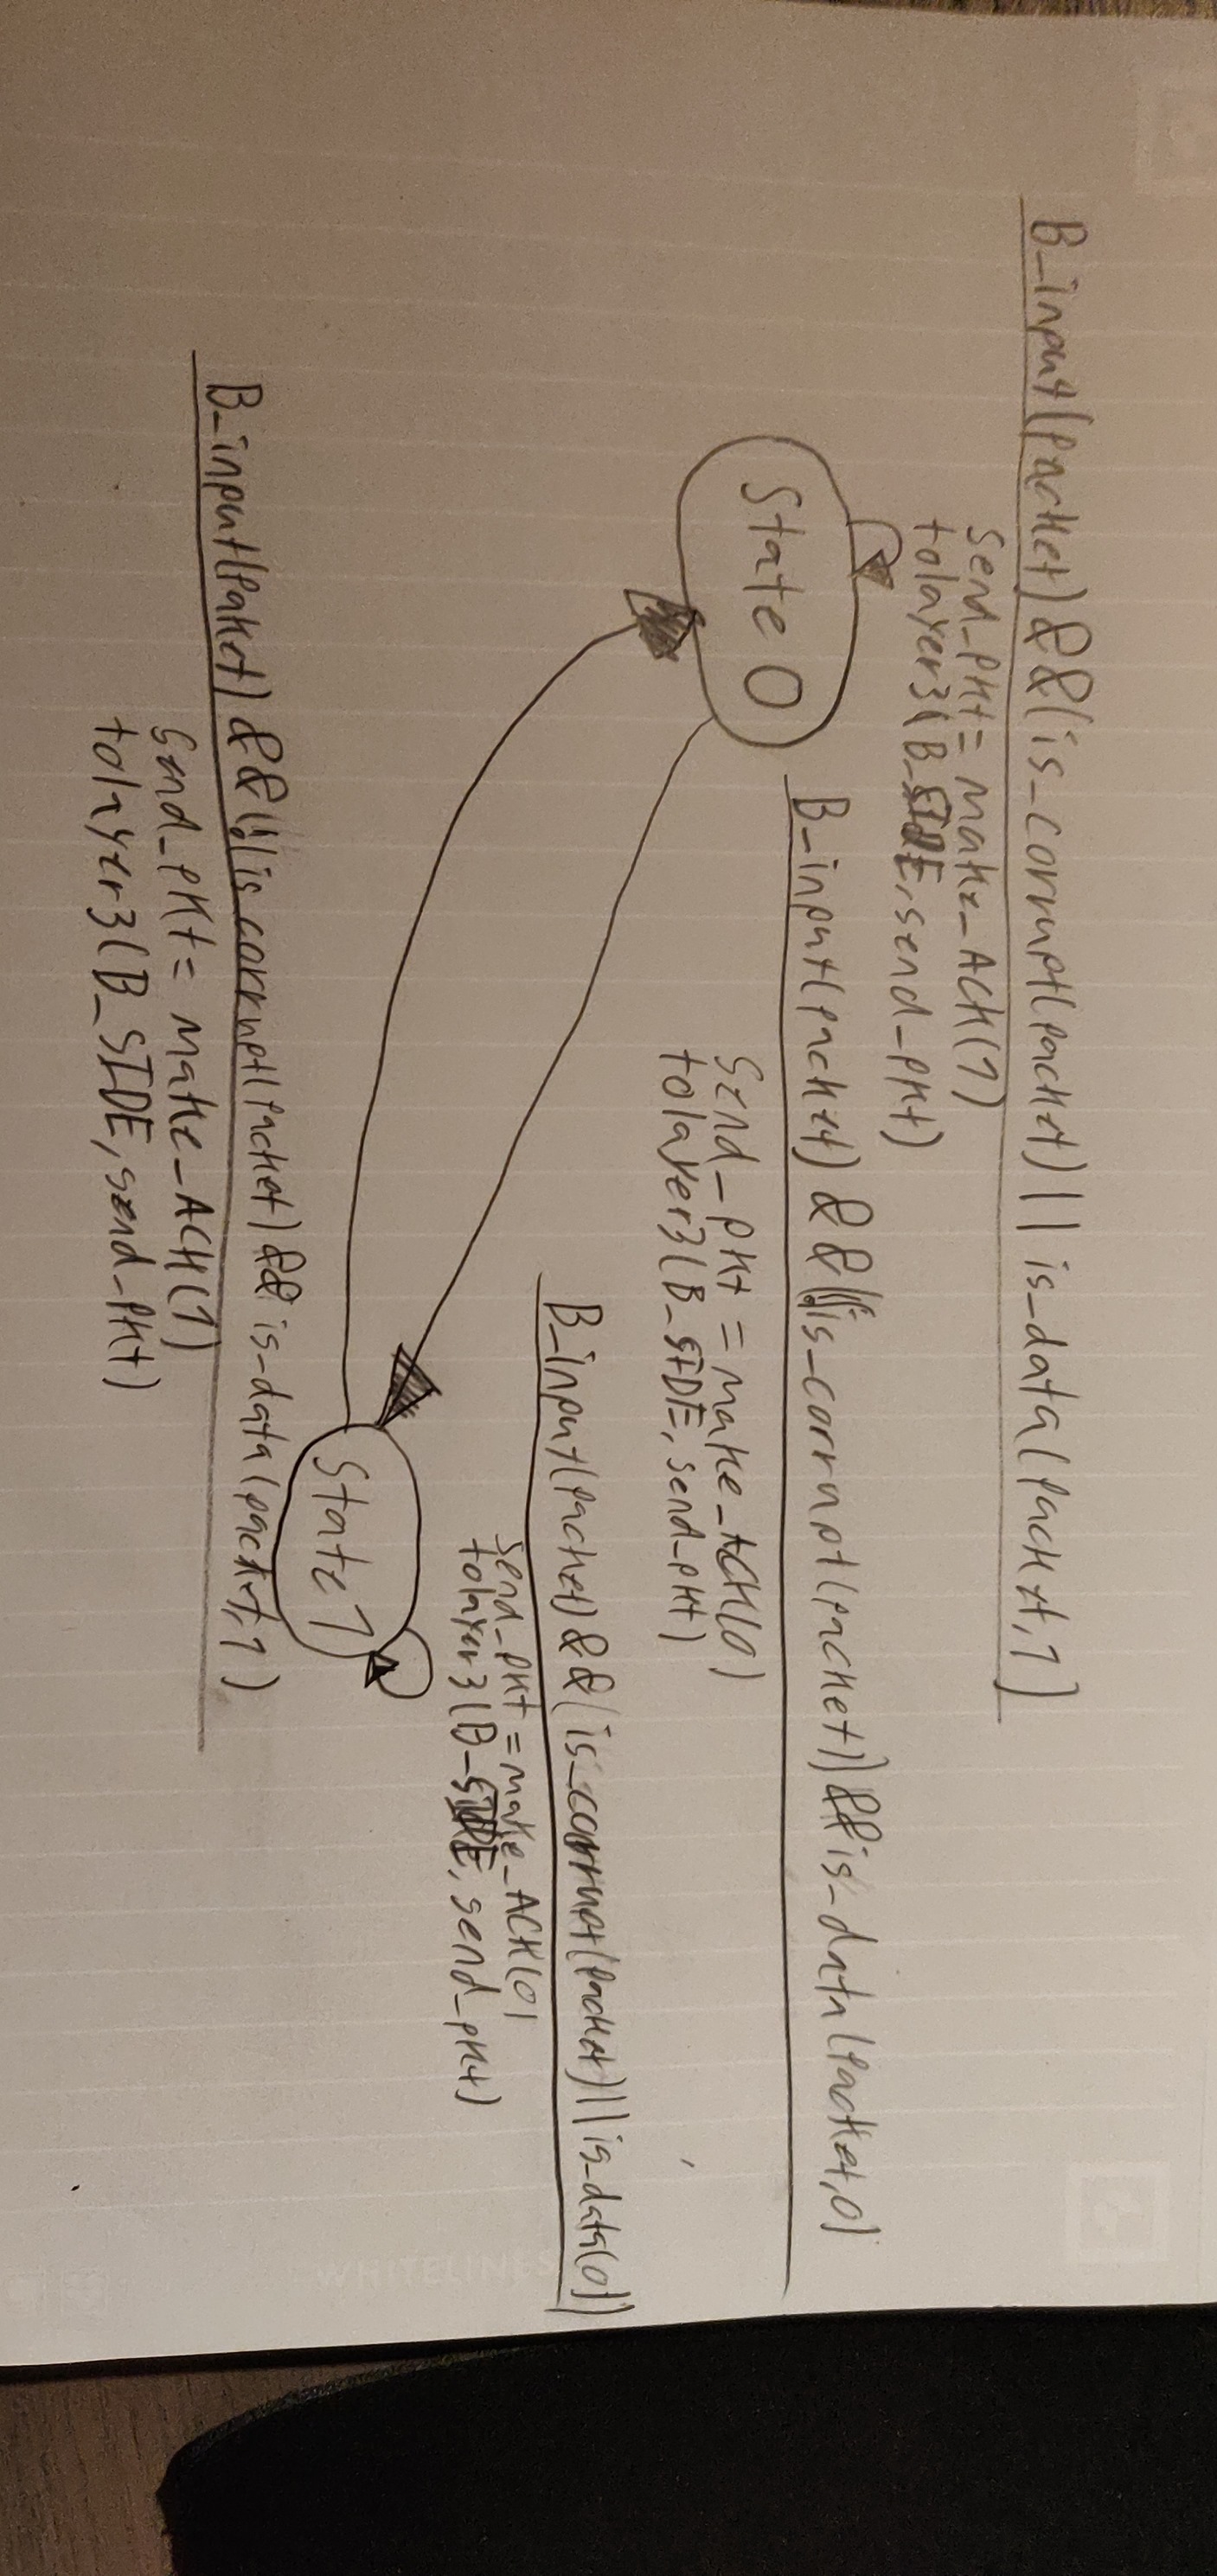 B_input(packet) && (is_corrupt(packet) || is_data(packet,1)
send_pkt = make_ACK(1)
tolayer3(B_SIDE, send_pkt)
State 0
B_input(packet) && !(is_corrupt(packet)) && is_data(packet,0)
send_pkt = make_ACK(0)
tolayer3(B_SIDE, send_pkt)
B_input(packet) && (is_corrupt(packet) || is_data(0))
send_pkt = make_ACK(0)
tolayer3(B_SIDE, send_pkt)
State 1
B_input(paket) && (!(is_corrupt(packet) && is_data(packet,1)
send_pkt = make_ACK(1)
tolayer3(B_SIDE, send_pkt)
WHITELINES